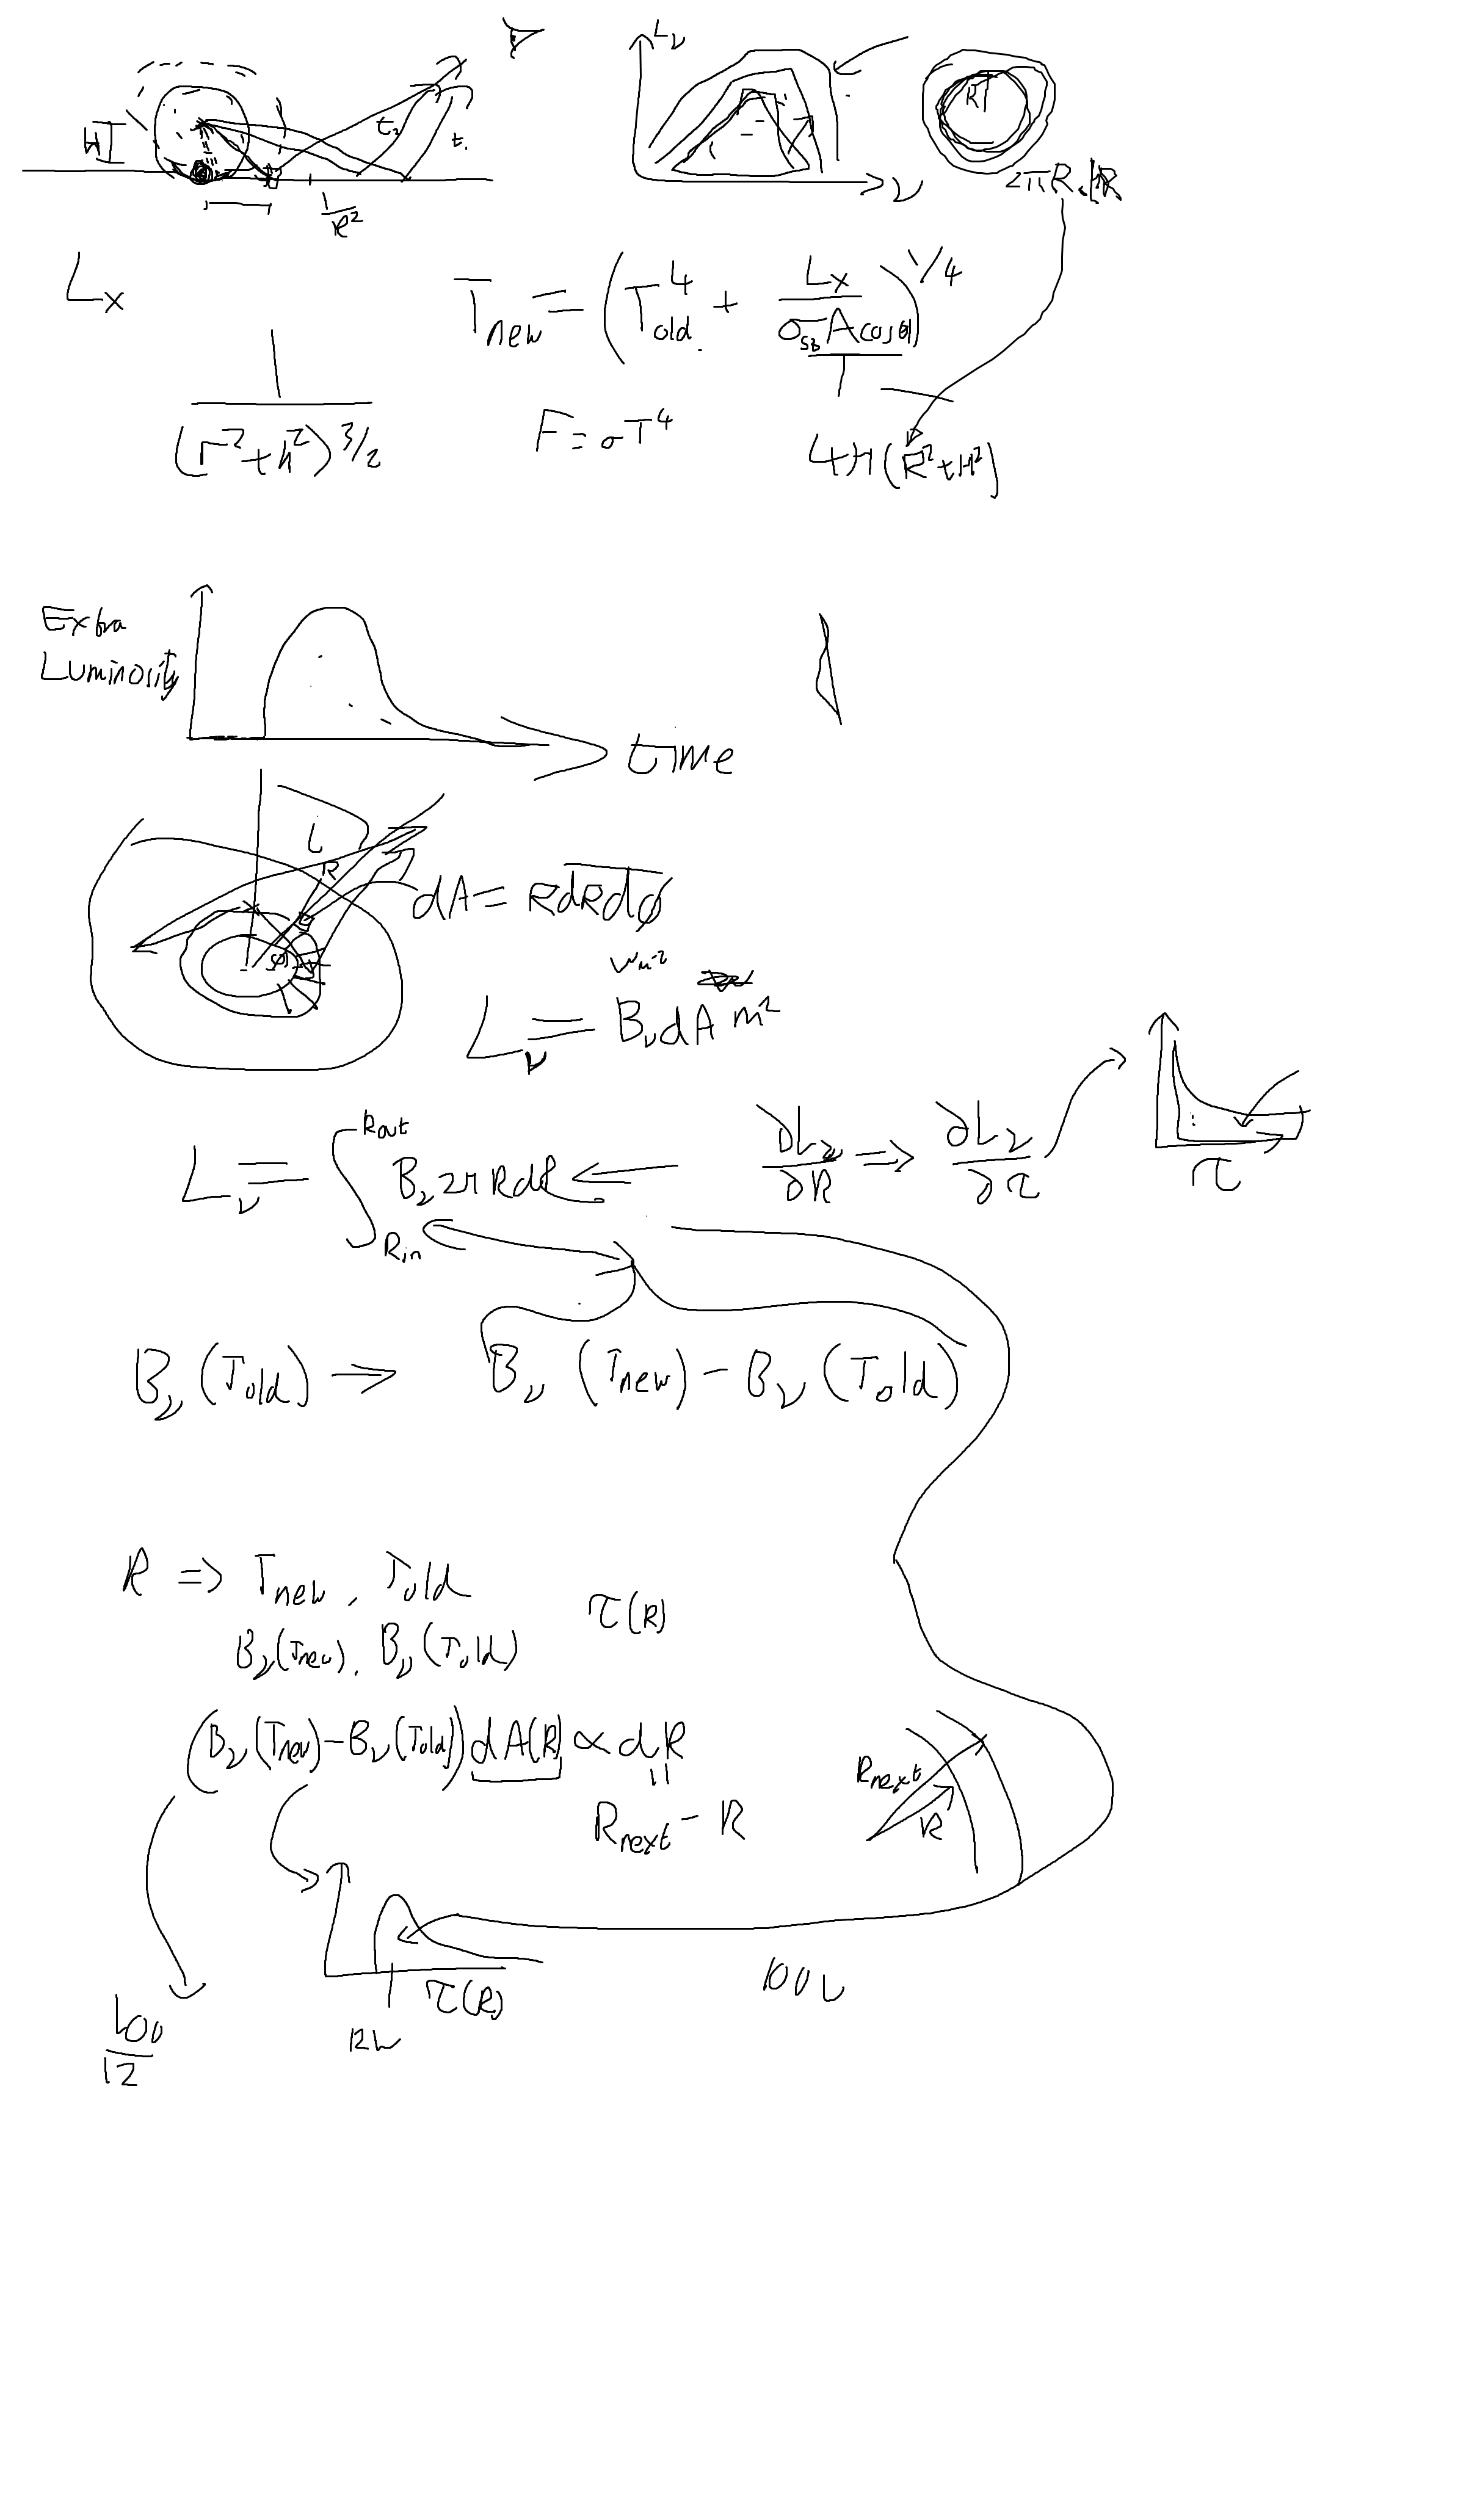 L_ν
H
t_2
t_1
ν
2πR dR
1/R^2
L_x
T_new = (T_old^4 + L_x / (σ_SB A cosθ))^1/4
1 / (r^2+h^2)^3/2
F = σT^4
4π(R^2+H^2)
Extra
Luminosity
time
i
R
dA = R dR dφ
Wm^-2
L_ν = B_ν dA m^2
L_ν = ∫_Rin^Rout B_ν 2π R dR ⇐ ∂L_ν/∂R ⇒ ∂L_ν/∂τ
τ
B_ν (T_old) ⇒ B_ν (T_new) - B_ν (T_old)
R ⇒ T_new, T_old
τ(R)
B_ν(T_new), B_ν(T_old)
(B_ν(T_new) - B_ν(T_old)) dA(R) ∝ dR
R_next
R
R_next - R
τ(R)